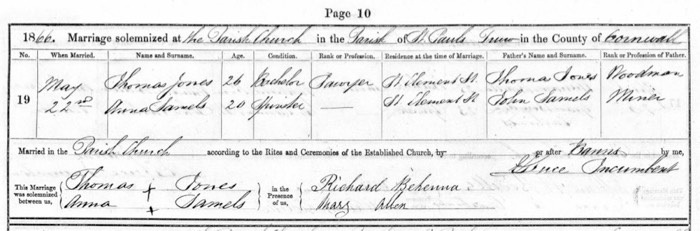 Page 10
1866. Marriage solemnized at the Parish Church in the Parish of St Pauls Truro in the County of Cornwall
No. When Married. Name and Surname. Age. Condition. Rank or Profession. Residence at the time of Marriage. Father's Name and Surname. Rank or Profession of Father.
19 May 22nd Thomas Jones 26 Bachelor Sawyer St Clement St Thomas Jones Woodman
Anna Samels 20 Spinster — St Clement St John Samels Miner
Married in the Parish Church according to the Rites and Ceremonies of the Established Church, by or after Banns by me,
Incumbent
This Marriage was solemnized between us, Thomas + Jones
Anna + Samels
in the Presence of us, Richard Behenna
Mary Allen